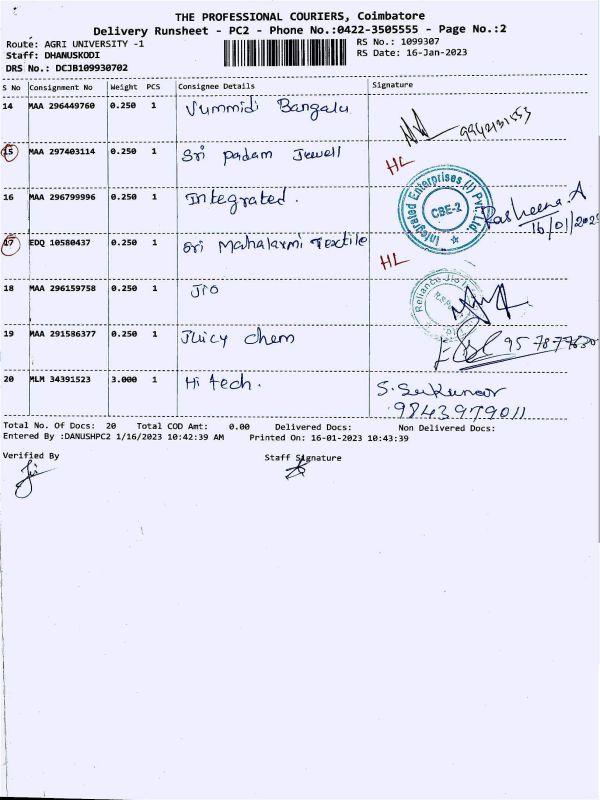 THE PROFESSIONAL COURIERS, Coimbatore
Delivery Runsheet - PC2 - Phone No.:0422-3505555 - Page No.:2
Route: AGRI UNIVERSITY -1 RS No.: 1099307
Staff: DHANUSKODI RS Date: 16-Jan-2023
DRS No.: DCJB109930702
S No Consignment No Weight PCS Consignee Details Signature
14 MAA 296449760 0.250 1 Vummidi Bangalu 9942131553
15 MAA 297403114 0.250 1 Sri padam Jewell HL
16 MAA 296799996 0.250 1 Integrated. Integrated Enterprises (I) Pvt. Ltd. CBE-2 Rasheena.A
16/01/202
17 EDQ 10580437 0.250 1 Sri Mahalaxmi Textile HL
18 MAA 296159758 0.250 1 JIO Reliance Jio
19 MAA 291586377 0.250 1 Juicy chem 957877630
20 MLM 34391523 3.000 1 Hi tech. S. Sukumar
9843979011
Total No. Of Docs: 20 Total COD Amt: 0.00 Delivered Docs: Non Delivered Docs:
Entered By :DANUSHPC2 1/16/2023 10:42:39 AM Printed On: 16-01-2023 10:43:39
Verified By Staff Signature